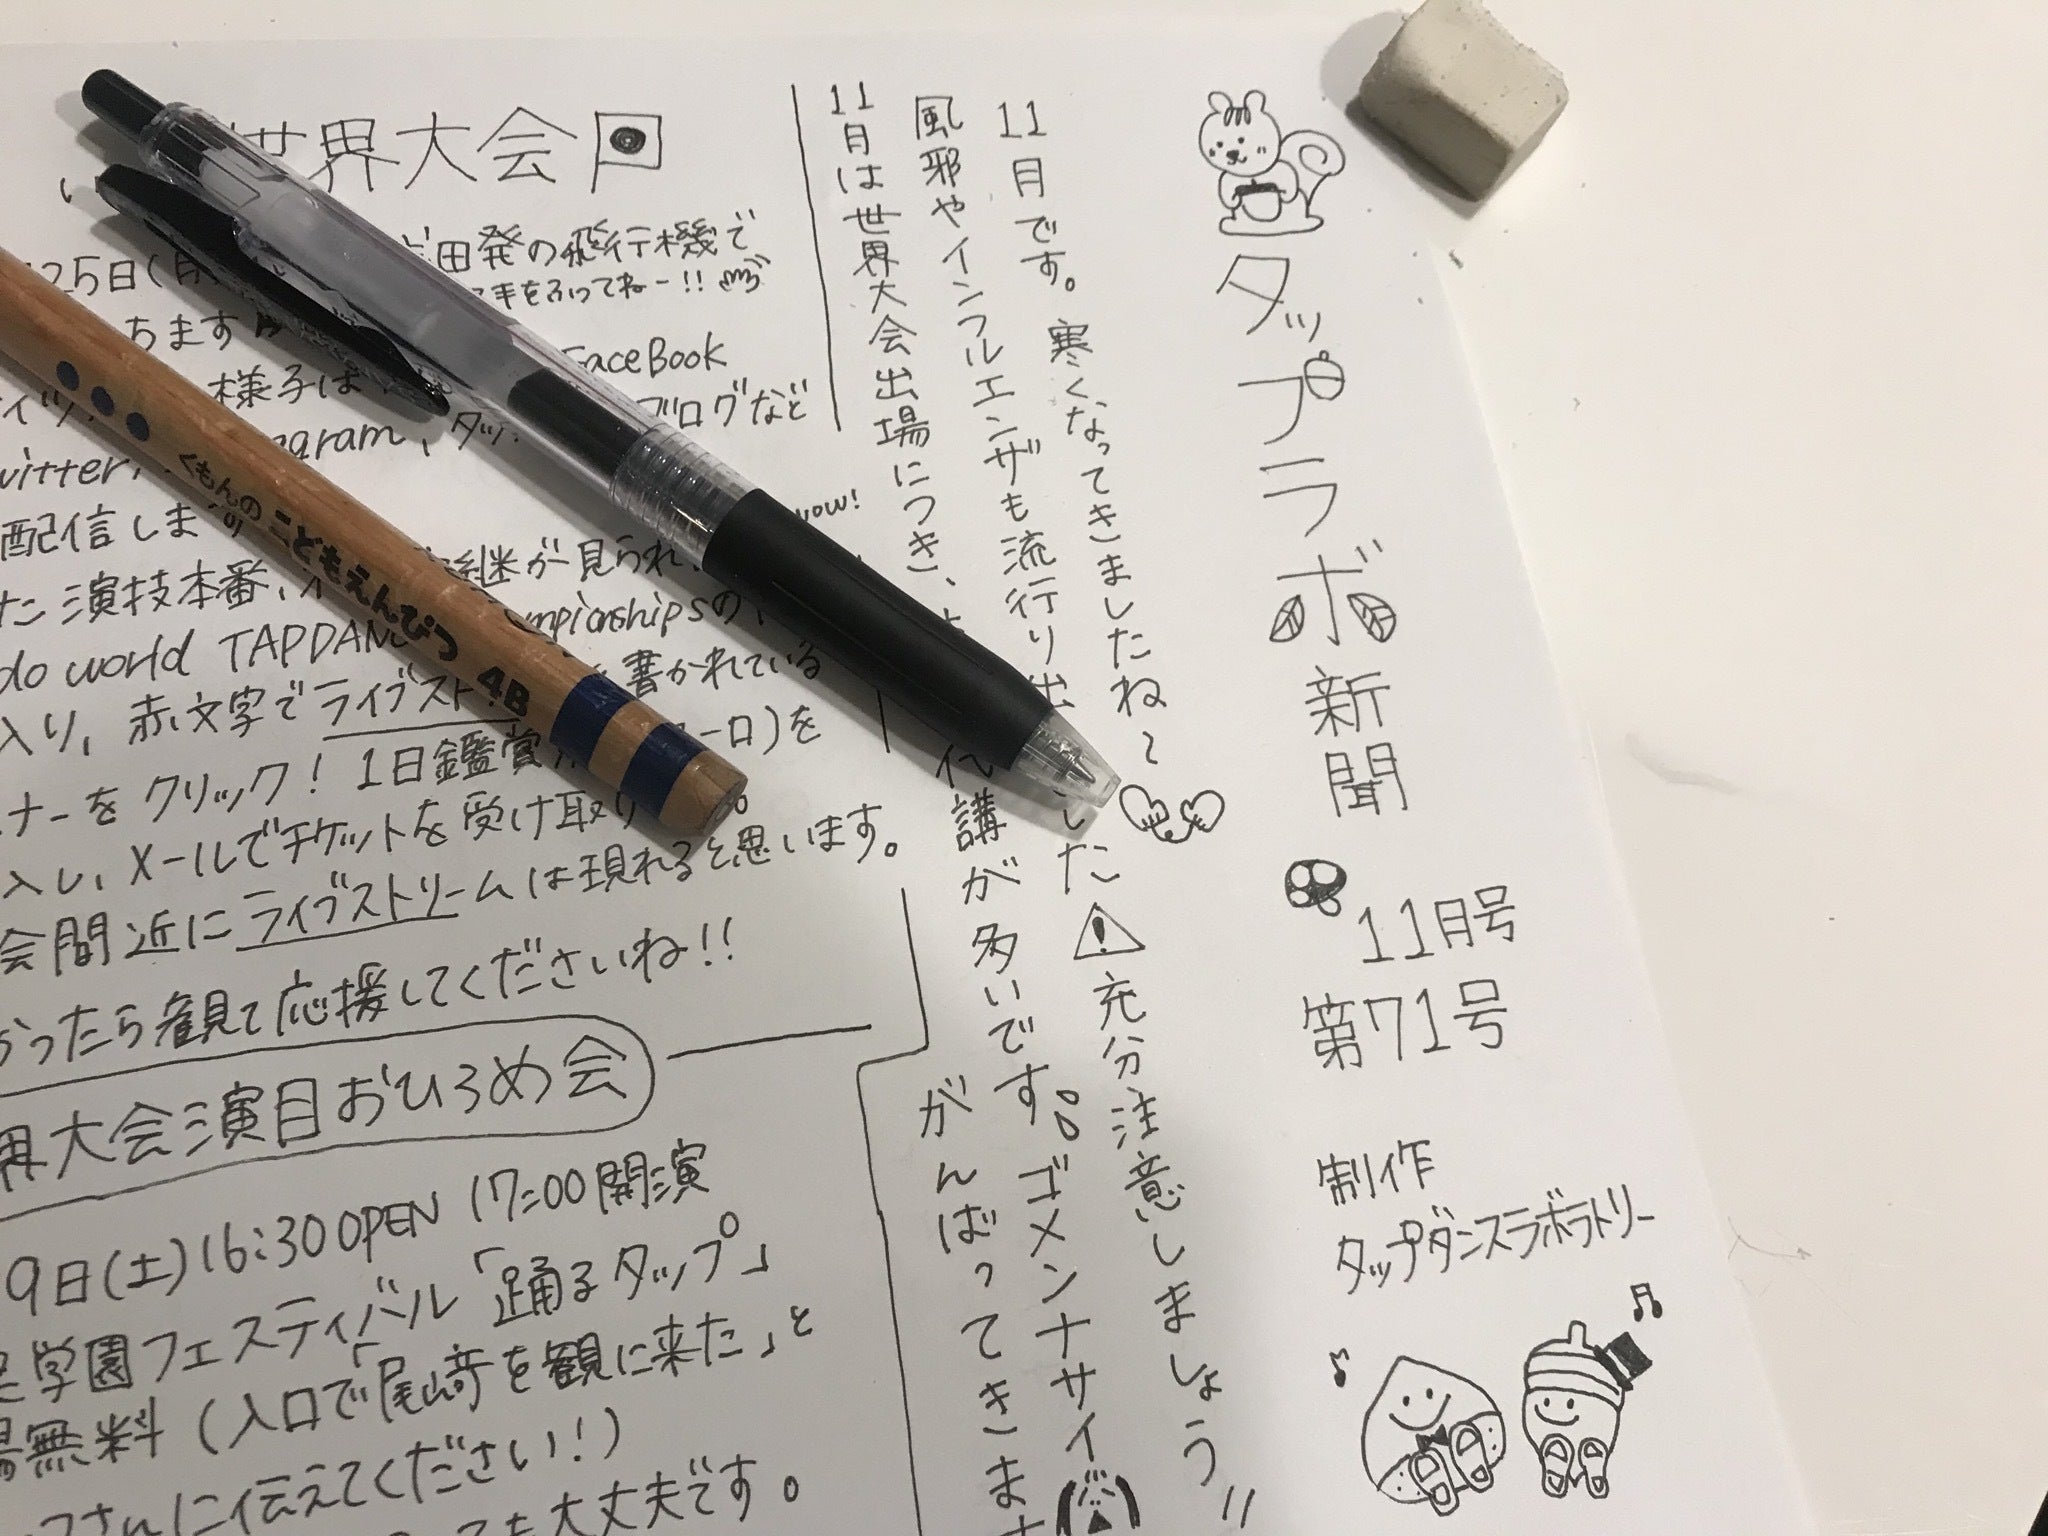 タップラボ新聞
11月号
第71号
制作
タップダンスラボラトリー
11月です。寒くなってきましたね〜
風邪やインフルエンザも流行り出した 充分注意しましょう!!
11月は世界大会出場につき、代講が多いです。ゴメンナサイ
がんばってきます
世界大会
25日(月 田発の飛行機で
手をふってねー!!
ちます FaceBook
様子は ブログなど
witter, gram, タッ
配信しま now!
た演技本番、 継が見られ
do world TAPDAN mpionshipsの
入り、赤文字でライブスト 書かれている
ナーをクリック! 1日鑑賞 ーロ)を
入し、メールでチケットを受け取り 。
会間近にライブストリームは現れると思います。
かったら観て応援してくださいね!!
界大会演目おひろめ会
9日(土)16:30OPEN 17:00開演
学園フェスティバル「踊るタップ」
場無料(入口で「尾崎を観に来た」と
さんに伝えてください!)
も大丈夫です。
くもんの こどもえんぴつ 4B